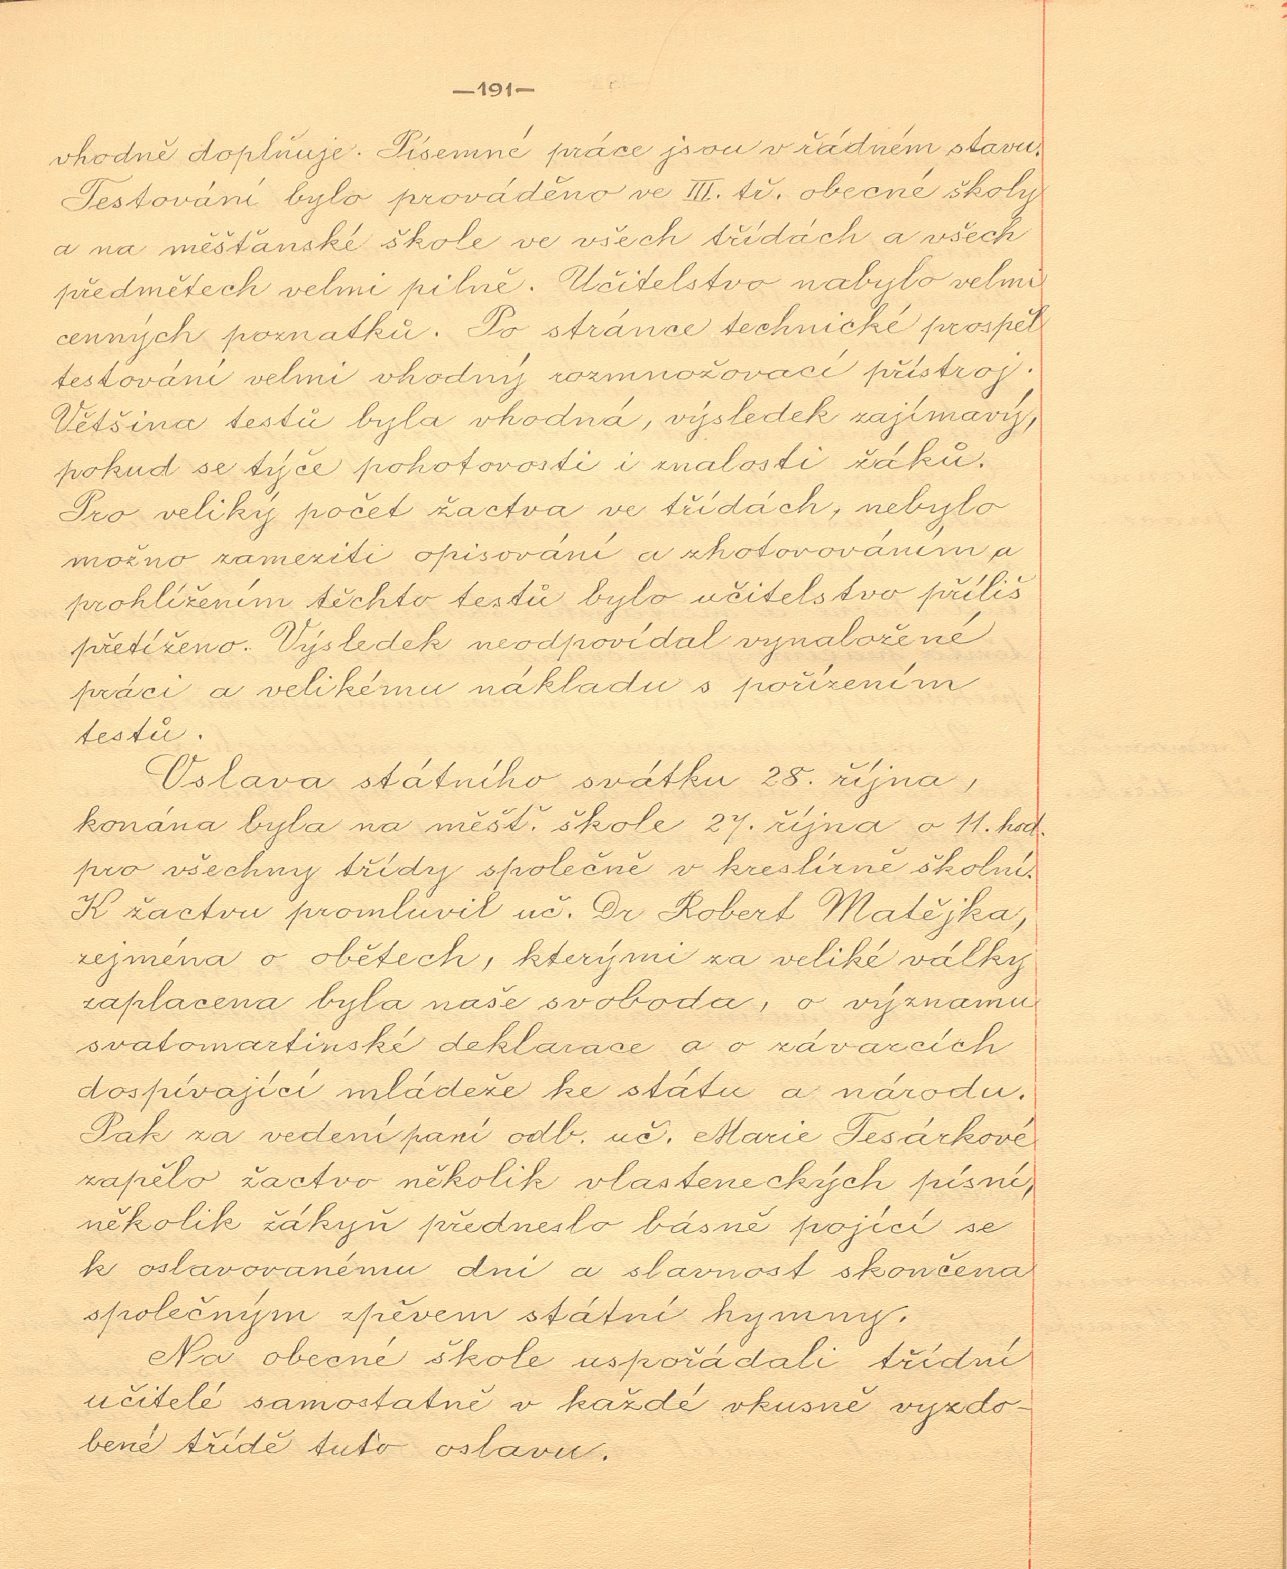 —191—
vhodně doplňuje. Písemné práce jsou v řádném stavu.
Testování bylo prováděno ve III. tř. obecné školy
a na měšťanské škole ve všech třídách a všech
předmětech velmi pilně. Učitelstvo nabylo velmi
cenných poznatků. Po stránce technické prospěl
testování velmi vhodný rozmnožovací přístroj.
Většina testů byla vhodná, výsledek zajímavý,
pokud se týče pohotovosti i znalosti žáků.
Pro veliký počet žactva ve třídách, nebylo
možno zameziti opisování a zhotovováním a
prohlížením těchto testů bylo učitelstvo příliš
přetíženo. Výsledek neodpovídal vynaložené
práci a velikému nákladu s pořízením
testů.
Oslava státního svátku 28. října,
konána byla na měšť. škole 27. října o 11. hod.
pro všechny třídy společně v kreslírně školní.
K žactvu promluvil uč. Dr Robert Matějka,
zejména o obětech, kterými za veliké války
zaplacena byla naše svoboda, o významu
svatomartinské deklarace a o závazcích
dospívající mládeže ke státu a národu.
Pak za vedení paní odb. uč. Marie Tesárkové
zapělo žactvo několik vlasteneckých písní,
několik žákyň předneslo básně pojící se
k oslavovanému dni a slavnost skončena
společným zpěvem státní hymny.
Na obecné škole uspořádali třídní
učitelé samostatně v každé vkusně vyzdo-
bené třídě tuto oslavu.